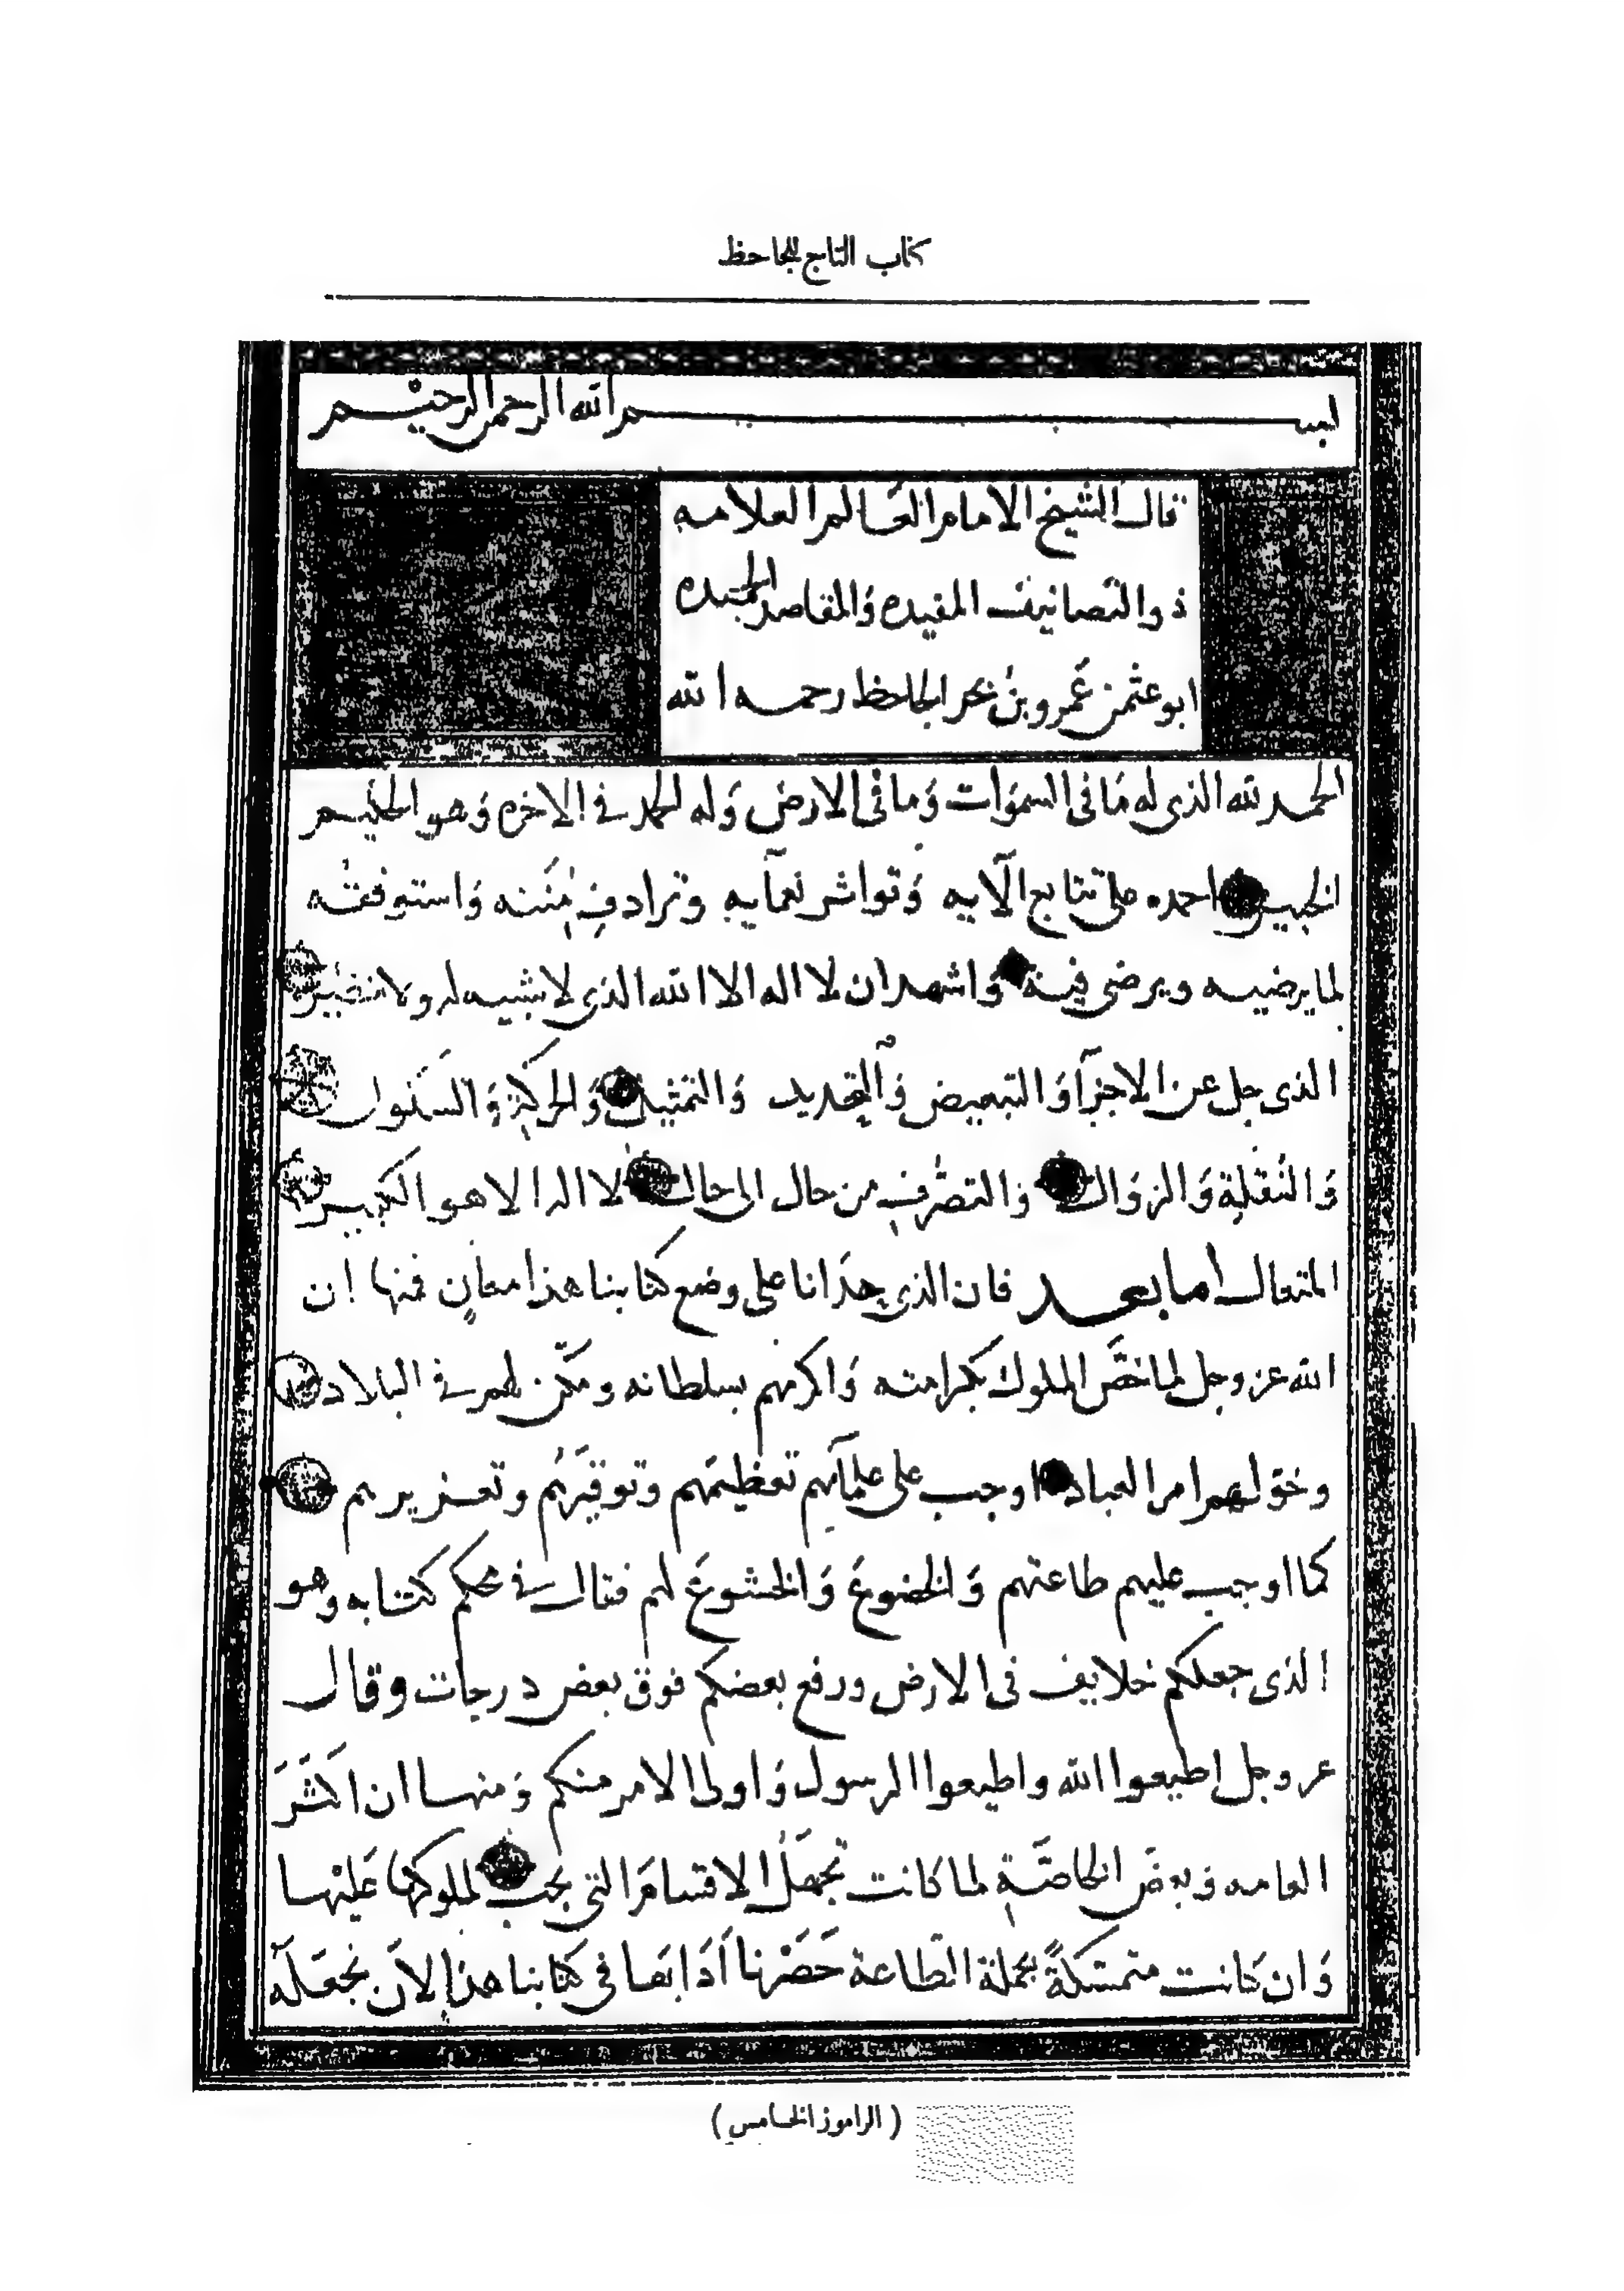 كتاب التاج للجاحظ
بسم الله الرحمن الرحيم
قال الشيخ الامام العالم العلامه
ذو التصانيف المفيده وَالمقاصد الحميده
ابو عثمن عَمرو بنُ بحر الجاحظ رحمه الله
الحمد لله الذى له مَا فى السموَات وَما فى الارض وَله الحمد فى الاخره وَهو الحكيم
الخبير احمده على تتابع الآيه وَتواتر نعمآيه وترادفِ مِنَنه وَاستوفقه
لما يرضيه ويرضى فيه وَاشهد ان لا اله الا الله الذى لا شبيه له ولا نظير
الذى جل عن الاجزآ وَالتبعيض وَالتحديد وَالتمثيل وَالحركةِ وَالسكون
وَالنُقلةِ وَالزوَال والتصرُفِ من حال الى حال لا اله الا هو الكبير
المتعال اما بعد فان الذى حدَانا على وضع كتابنا هذا معانٍ فمنها ان
الله عز وجل لما خصَّ الملوك بكرامته وَاكرمهم بسلطانه ومكّن لهم فى البلاد
وخوّلهم امر العباد اوجب على علمآيهم تعظيمَهم وتوقيرَهُم وتعزيرهم
كما اوجب عليهم طاعتهم وَالخضوعَ وَالخشوعَ لهم فقال فى محكم كتابه وهو
الذى جعلكم خلايف فى الارض ورفع بعضكم فوق بعض درجات وقال
عز وجل اطيعوا الله واطيعوا الرسول وَاولى الامر منكم وَمنها ان اكثَرَ
العامه وبعضَ الخاصَّةِ لما كانت تجهَلُ الاقسامَ التى يجب لملوكها عَليْها
وَان كانت متمسّكةً بجملة الطاعة حَصَرْنا آدَابَها فى كتابنا هذا لِاَن نجعَلَه
(الراموز الخامس)